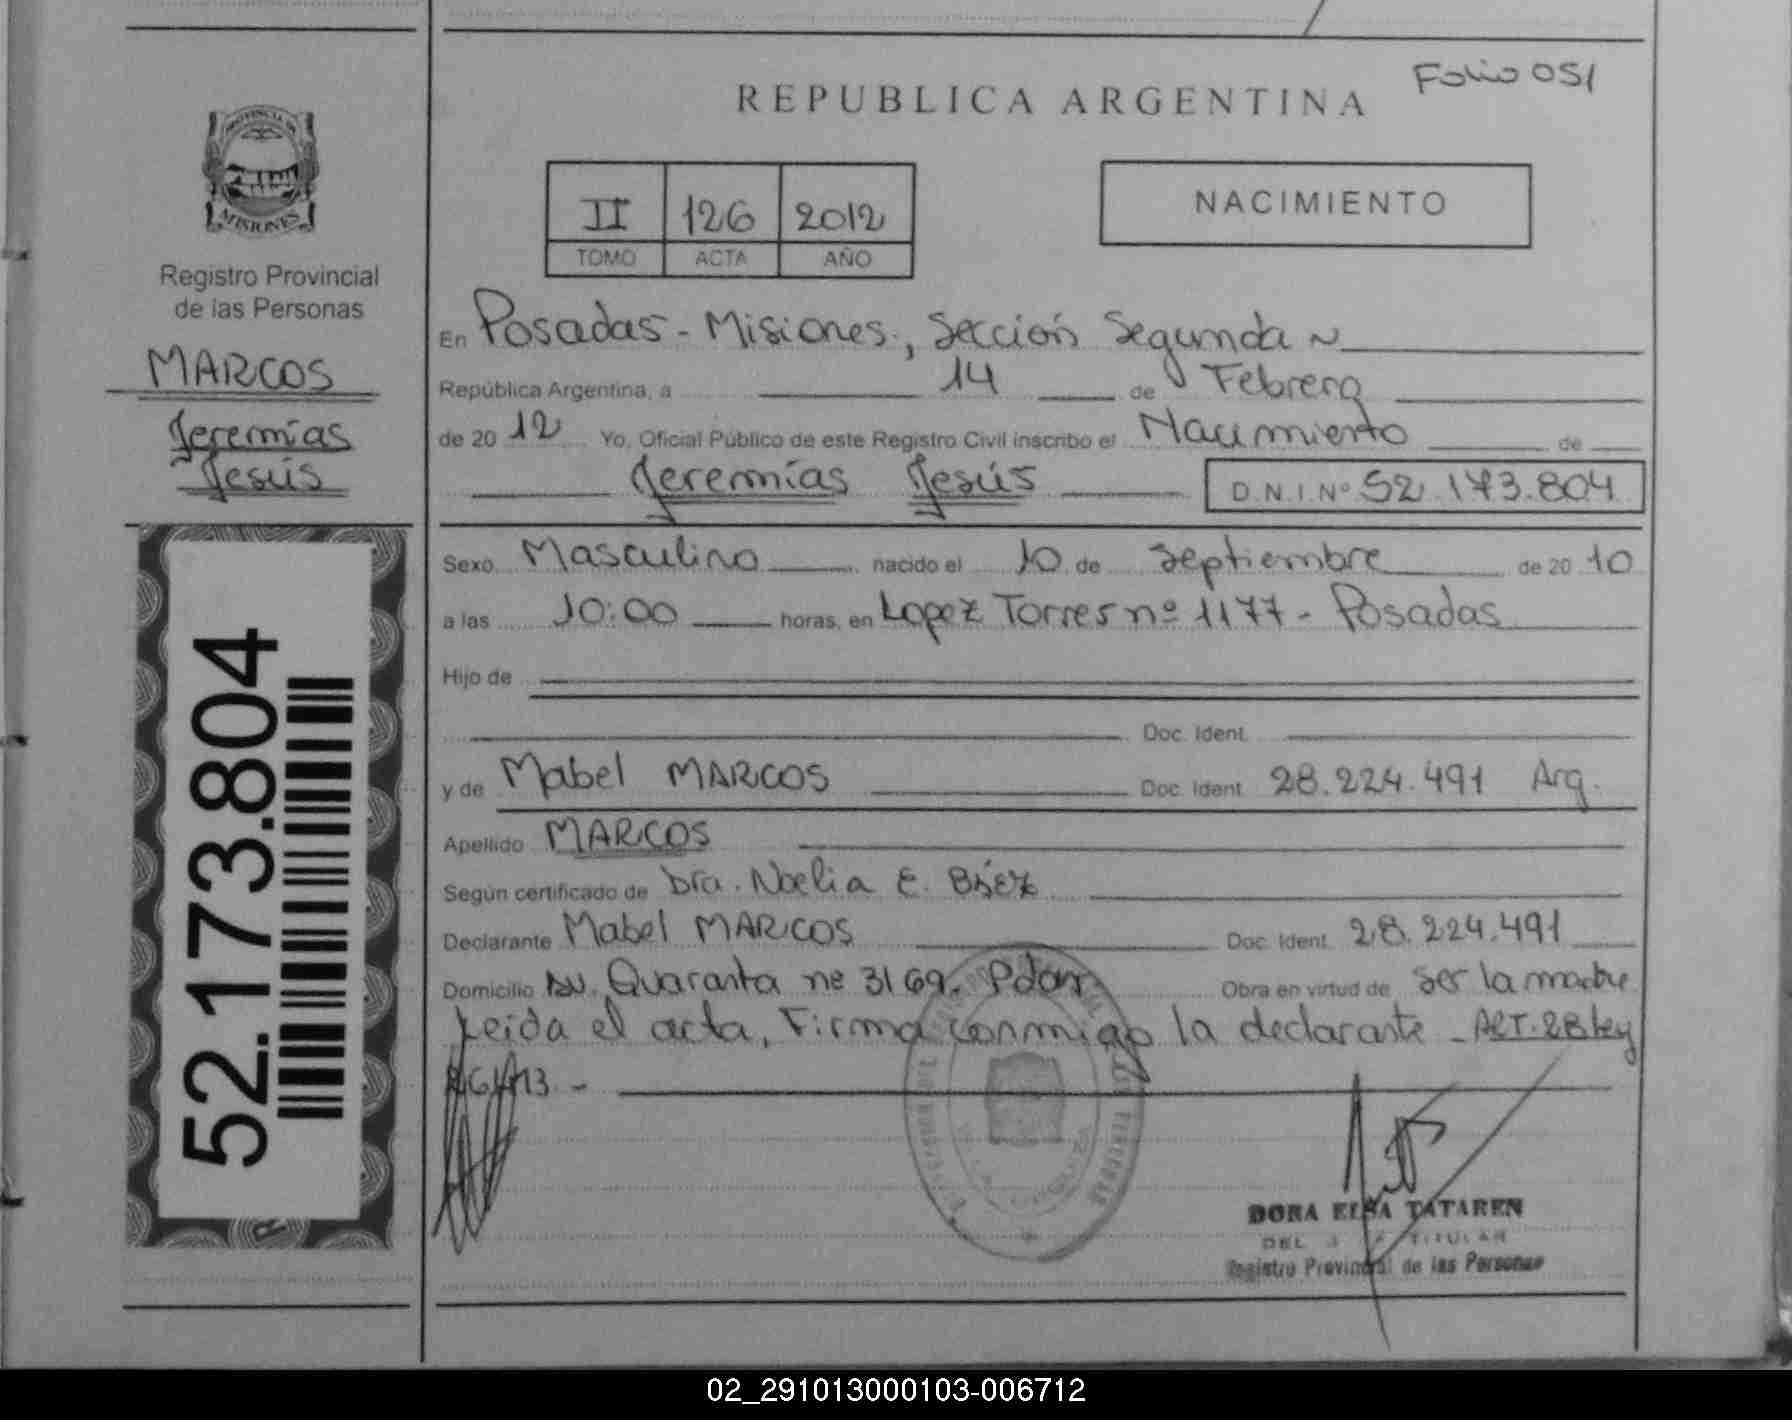 Folio 051
REPUBLICA ARGENTINA
PROVINCIA DE
MISIONES
Registro Provincial
de las Personas
MARCOS
Jeremías
Jesús
52.173.804
II 126 2012
TOMO ACTA AÑO
NACIMIENTO
En Posadas - Misiones, Sección Segunda
República Argentina, a 14 de Febrero
de 20 12 Yo, Oficial Público de este Registro Civil inscribo el Nacimiento de
Jeremías Jesús D.N.I.Nº 52.173.804
Sexo Masculino nacido el 10 de Septiembre de 20 10
a las 10:00 horas, en Lopez Torres nº 1177 - Posadas
Hijo de
Doc. Ident.
y de Mabel MARCOS Doc. Ident. 28.224.491 Arg.
Apellido MARCOS
Según certificado de Dra. Noelia E. Báez
Declarante Mabel MARCOS Doc. Ident. 28.224.491
Domicilio Av. Quaranta nº 3169. Pdas. Obra en virtud de ser la madre
Leída el acta, Firma conmigo la declarante - ART. 28 Ley
DORA ELSA TATAREN
TITULAR
Registro Provincial de las Personas
02_291013000103-006712